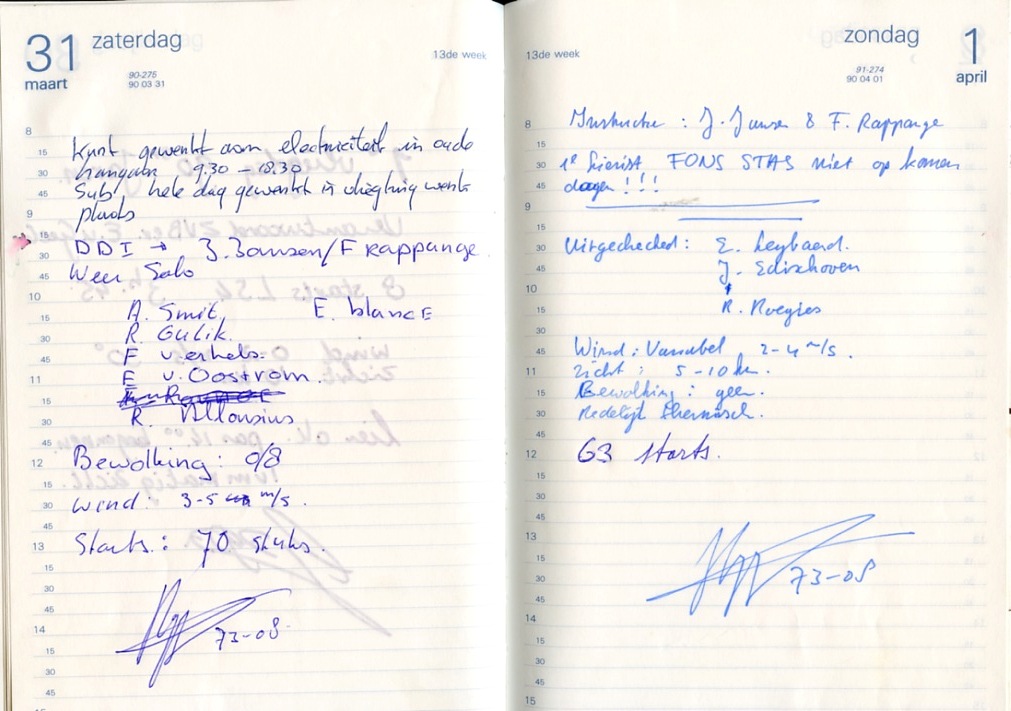 31 zaterdag
maart
90-275
90 03 31
13de week
Kurt gewerkt aan electriciteit in oude
hangaar 9.30 – 18.30
Sub hele dag gewerkt in vliegtuig werk
plaats
DDI → J. Jansen/F Rappange
Weer Solo
A. Smit. E. blancE
R. Gulik.
F verhels.
E v. Oostrom.
R. Allousius
Bewolking: 0/8
wind: 3-5 m/s.
Starts.: 70 stuks.
73-08
13de week
zondag 1
april
91-274
90 04 01
Instructie : J. Jansen & F. Rappange
1e lierist FONS STAS niet op komen
dagen!!!
Uitgechecked: E. Leybaard.
J. Edixhoven
R. Roegies
Wind: Variabel 2-4 m/s.
zicht : 5-10 km.
Bewolking: geen.
Redelijk thermisch.
63 starts.
73-08
8
15
30
45
9
15
30
45
10
15
30
45
11
15
30
45
12
15
30
45
13
15
30
45
14
15
30
45
8
15
30
45
9
15
30
45
10
15
30
45
11
15
30
45
12
15
30
45
13
15
30
45
14
15
30
45
15